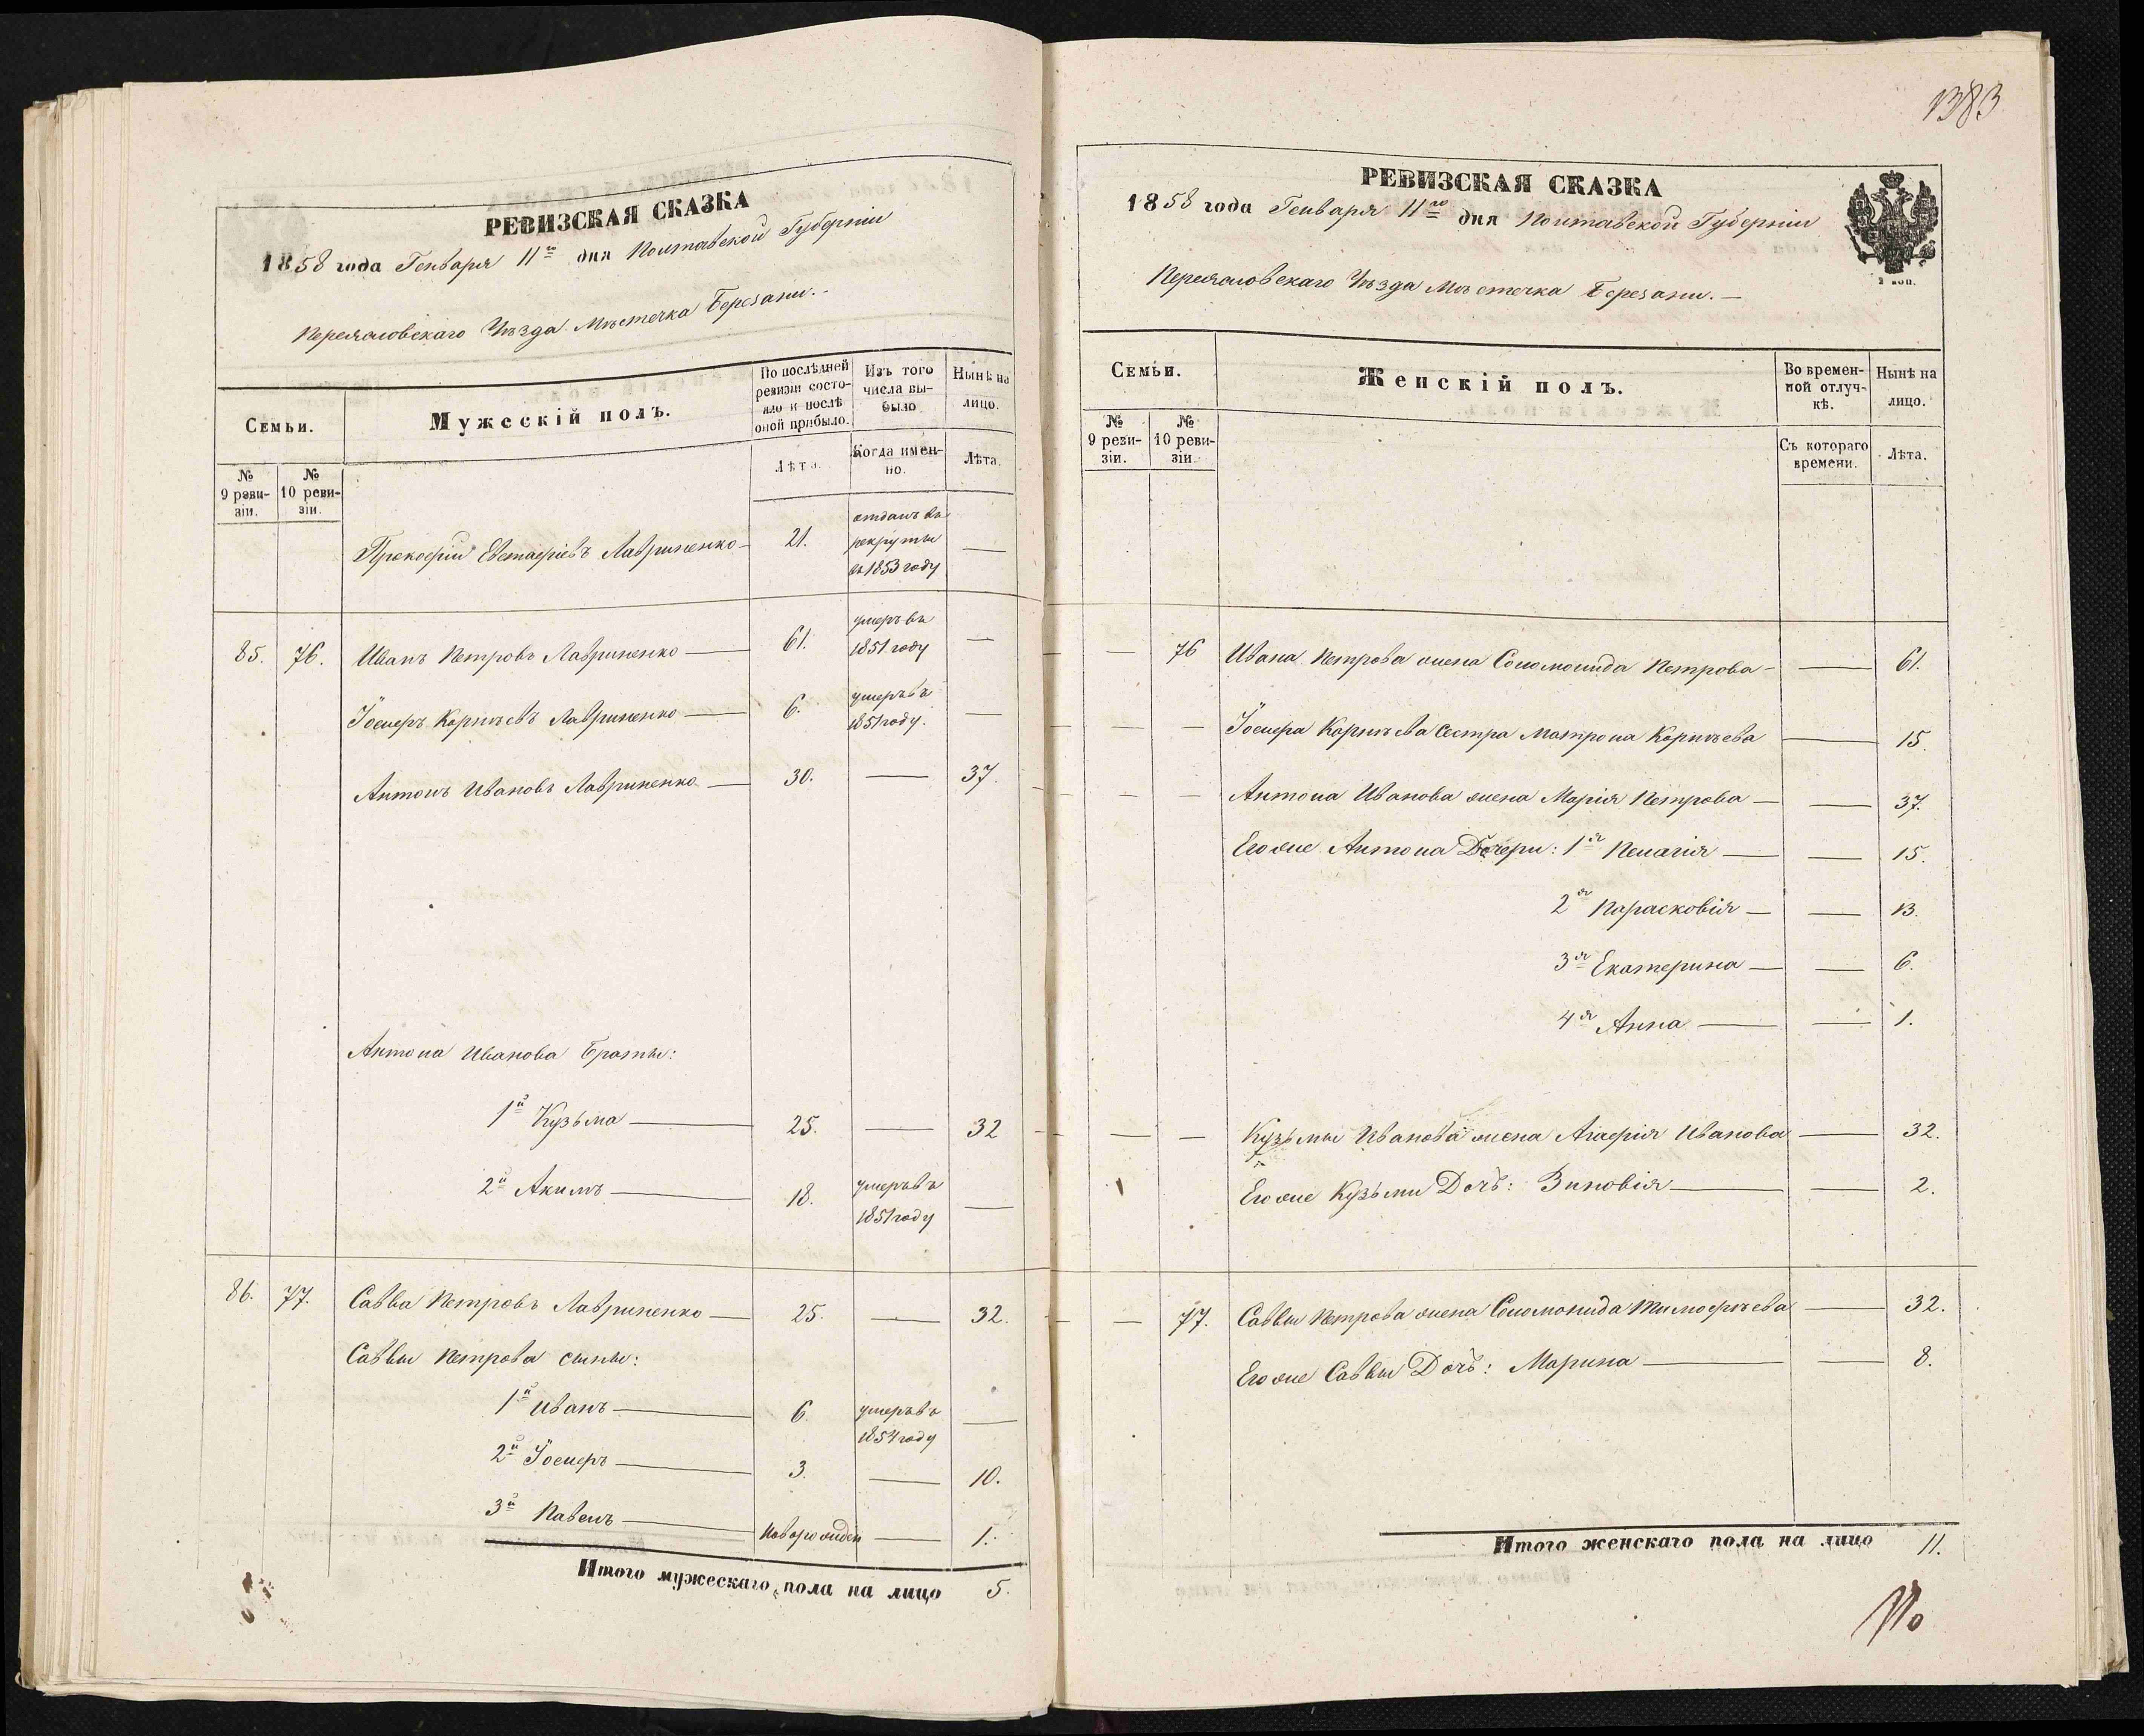 РЕВИЗСКАЯ СКАЗКА
1858 года Генваря 11го дня Полтавской Губерніи
Переяловскаго Уѣзда Мѣстечка Березани.
Семьи.
Мужескій полъ.
По послѣдней ревизіи состояло и послѣ оной прибыло.
Изъ того числа выбыло
Нынѣ на лицо.
№ 9 ревизіи.
№ 10 ревизіи.
Лѣта.
Когда именно.
Лѣта.
Прокофій Евстафіевъ Лавриненко 21. отданъ въ рекруты въ 1853 году —
85. 76. Иванъ Петровъ Лавриненко — 61. умеръ въ 1851 году —
Іосифъ Корнѣевъ Лавриненко — 6. умеръ въ 1851 году. —
Антонъ Ивановъ Лавриненко — 30. — 37.
Антона Иванова Братья:
1й Кузьма — 25. — 32
2й Акимъ — 18. умеръ въ 1851 году —
86. 77. Савва Петровъ Лавриненко — 25. — 32.
Саввы Петрова сыны:
1й Иванъ — 6. умеръ въ 1854 году —
2й Іосифъ — 3. — 10.
3й Павелъ — Новорожден — 1.
Итого мужескаго пола на лицо 5.
1383
РЕВИЗСКАЯ СКАЗКА
1858 года Генваря 11го дня Полтавской Губерніи
Переяловскаго Уѣзда Мѣстечка Березани. —
2 коп.
Семьи.
Женскій полъ.
Во временной отлучкѣ.
Нынѣ на лицо.
№ 9 ревизіи.
№ 10 ревизіи.
Съ котораго времени.
Лѣта.
— 76 Ивана Петрова жена Соломонида Петрова — 61.
— — Іосифа Корнѣева Сестра Матрона Корнѣева — 15.
— — Антона Иванова жена Марія Петрова — — 37.
Его же Антона Дочери: 1я Пелагія — — 15.
2я Парасковія — — 13.
3я Екатерина — — 6.
4я Анна — — 1.
— — Кузьмы Иванова жена Агафія Иванова — 32.
Его же Кузьмы Дочь: Зиновія — — 2.
— 77. Саввы Петрова жена Соломонида Тимофѣева — 32.
Его же Саввы Дочь: Марина — — 8.
Итого женскаго пола на лицо 11.